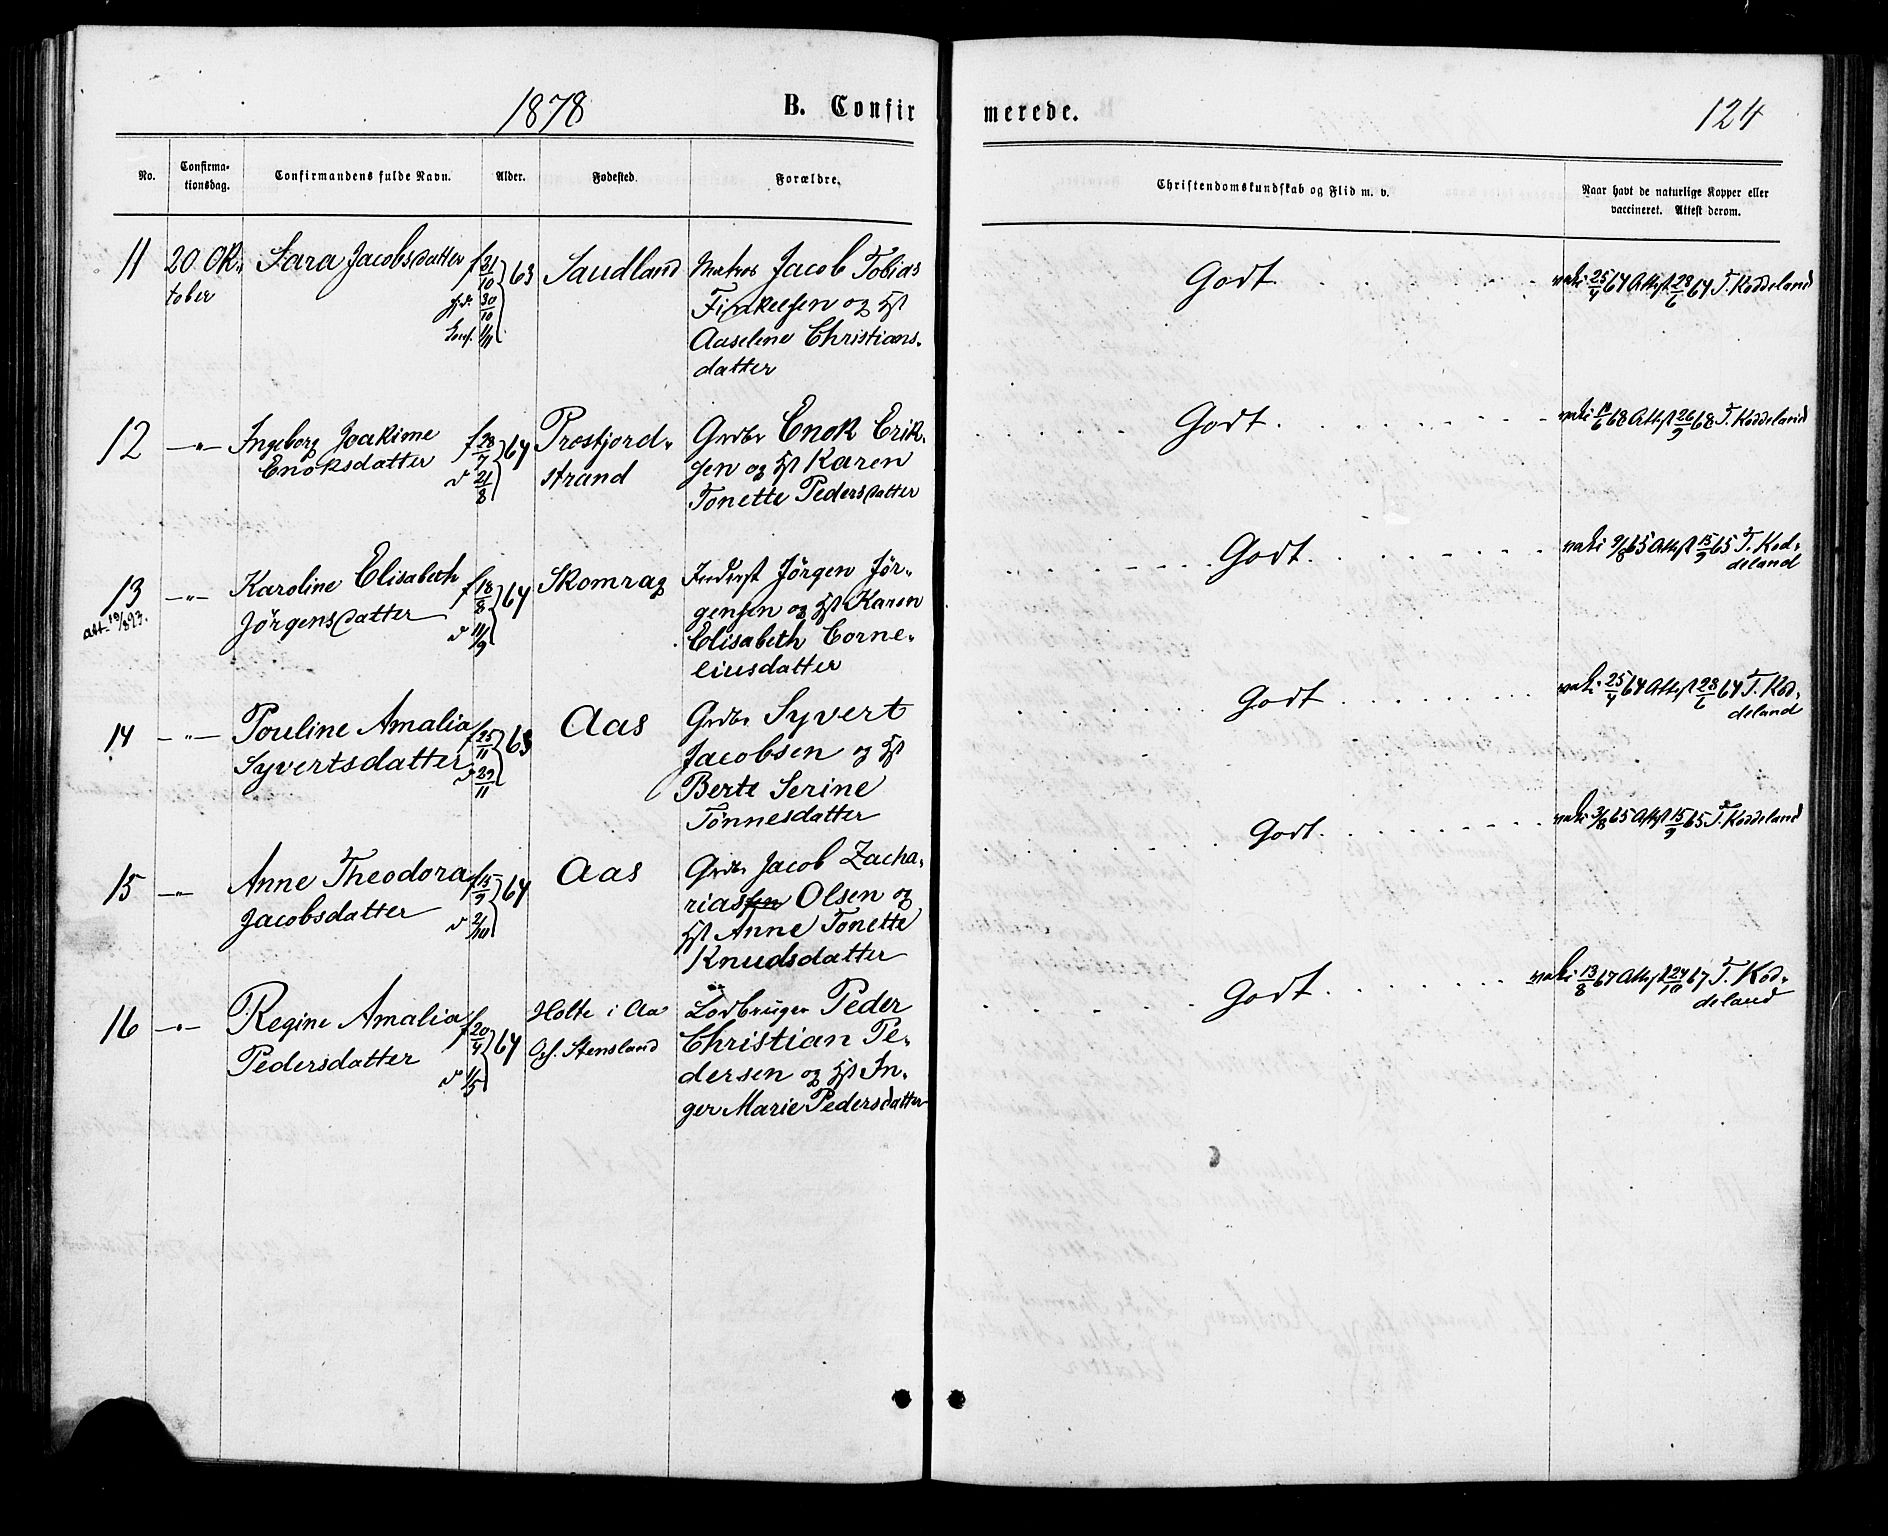 1878
B. Confir
merede.
124
No.
Confirma-
tionsdag.
Confirmandens fulde Navn.
Alder.
Fødested.
Forældre.
Christendomskundskab og Flid m. v.
Naar havt de naturlige Kopper eller
vaccineret. Attest derom.
11 20 Ok-
tober
Sara Jacobsdatter
f 31/10 63
30/10
1/11
Saudland
Matros Jacob Tobias
og Hst
Aaseline Christians-
datter
Godt
vaki 25/4 64 Attest 28/6 64 T. Koddeland
12 -"- Ingeborg Joakime
Enoksdatter
f 28/7 64
d 21/8
Prosfjord-
strand
Grdbr Enok Erik-
sen og Hst Karen
Tonette Pedersdatter
Godt
vaki 68 Attest 26/9 68 T. Koddeland
13 -"- Karoline Elisabeth
Jörgensdatter
f 18/8 64
d 11/9
Skomrag
Inderst Jörgen Jör-
gensen og Hst Karen
Elisabeth Corne-
liusdatter
Godt
vaki 9/8 65 Attest 15/9 65 T. Kod-
deland
14 -"- Pouline Amalia
Syvertsdatter
f 25/11 63
d 29/11
Aas
Grdbr Syvert
Jacobsen og Hst
Berte Serine
Tönnesdatter
Godt
vaki 25/4 64 Attest 28/6 64 T. Kod-
deland
15 -"- Anne Theodora
Jacobsdatter
f 15/9 64
d 2/10
Aas
Grdbr Jacob Zacha-
riassen Olsen og
Hst Anne Tonette
Knudsdatter
Godt
vaki 3/8 65 Attest 15/9 65 T. Koddeland
16 -"- Regine Amalia
Pedersdatter
f 20/4 64
d 1/5
Holte i Aa
Stensland
Lödbruger Peder
Christian Pe-
dersen og Hst In-
ger Marie Pedersdatter
Godt
vaki 13/8 67 Attest 24/10 67 T. Kod-
deland